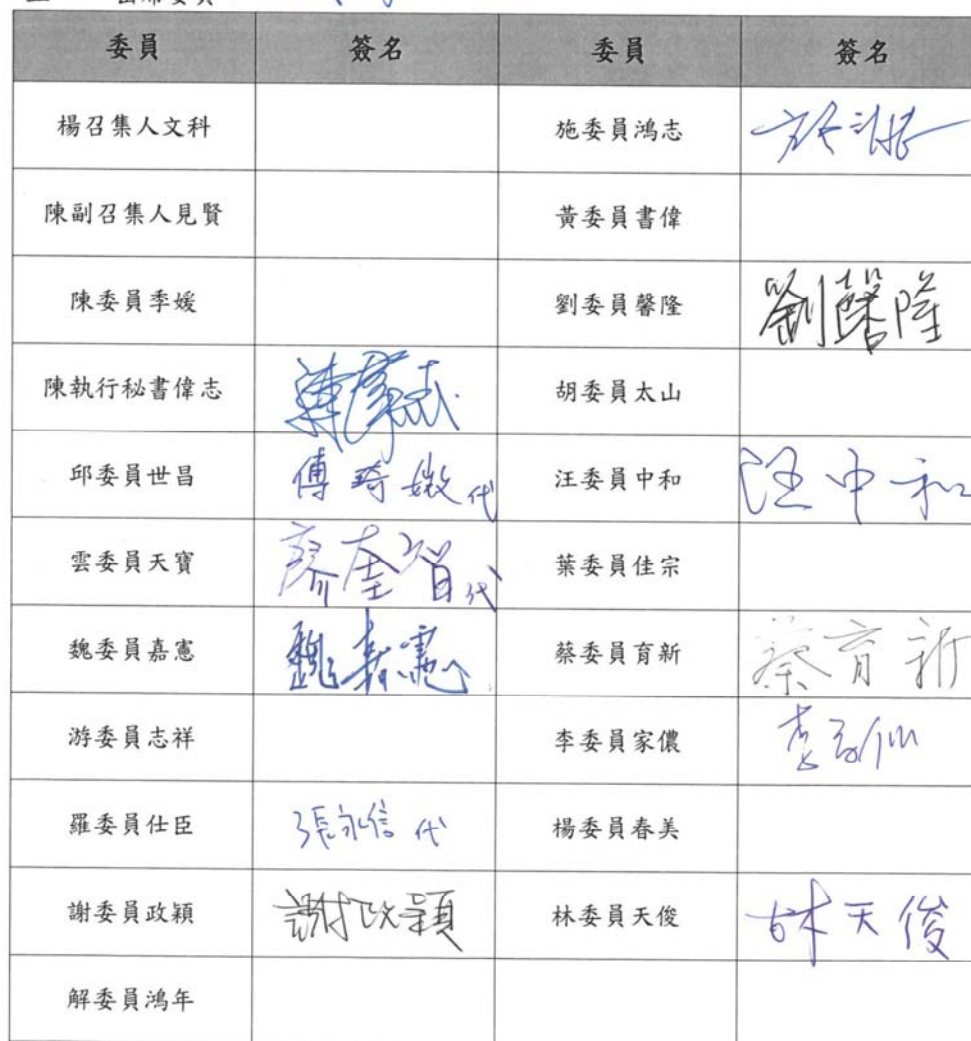 出席委員
委員 簽名 委員 簽名
楊召集人文科 施委員鴻志 施鴻志
陳副召集人見賢 黃委員書偉
陳委員季媛 劉委員馨隆 劉馨隆
陳執行秘書偉志 陳偉志 胡委員太山
邱委員世昌 傅琦媺代 汪委員中和 汪中和
雲委員天寶 廖奎智代 葉委員佳宗
魏委員嘉憲 魏嘉憲 蔡委員育新 蔡育新
游委員志祥 李委員家儂 李家儂
羅委員仕臣 張永信代 楊委員春美
謝委員政穎 謝政穎 林委員天俊 林天俊
解委員鴻年